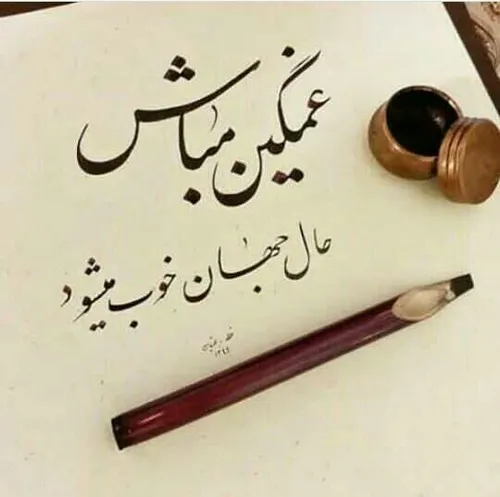 غمگین مباش
حال جهان خوب میشود